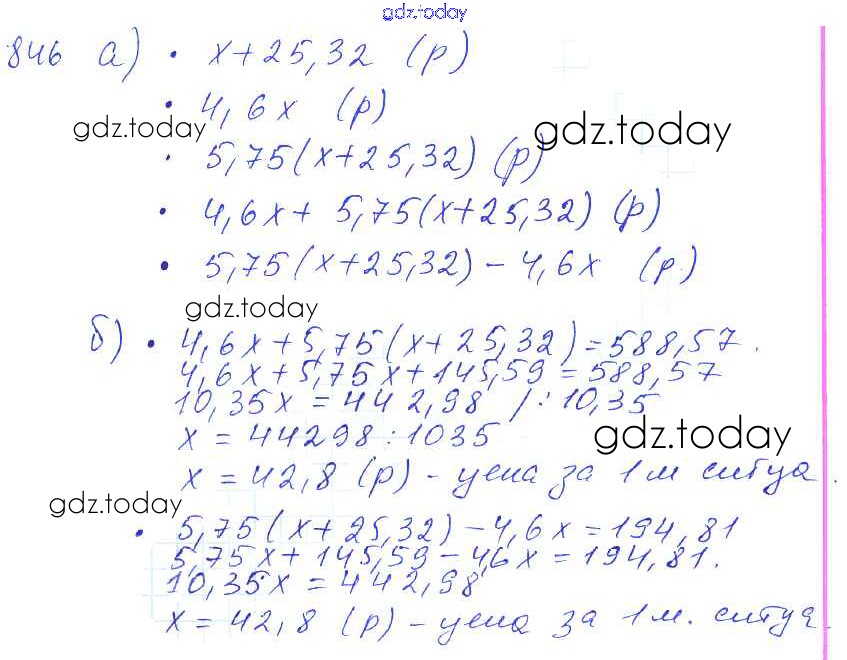 gdz.today
846 а) • x+25,32 (р)
• 4,6x (р)
gdz.today
gdz.today
• 5,75(x+25,32) (р)
• 4,6x+ 5,75(x+25,32) (р)
• 5,75(x+25,32) - 4,6x (р.)
gdz.today
б) • 4,6x+5,75(x+25,32)=588,57.
4,6x+5,75x+145,59=588,57
10,35x = 442,98 /:10,35
x = 44298:1035
gdz.today
x = 42,8 (р) - цена за 1 м ситца.
gdz.today
• 5,75(x+25,32)-4,6x=194,81
5,75x+145,59-4,6x=194,81.
10,35x = 442,98
x = 42,8 (р) - цена за 1 м. ситца.